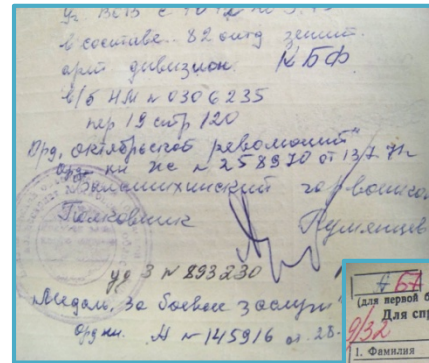 в составе 82 отд зенит.
арт дивизион. КБФ
в/б НМ № 0306235
пер 19 стр 120
Орд. октябрьской революции"
орд кн № 258970 от 13/7 71г
Балашихинский горвоенком
Полковник Румянцев
уд З № 893230
Медаль "За боевые заслуги"
орд кн. А № 145916 от 28-
(для первой
Для спр
9/32
1. Фамилия